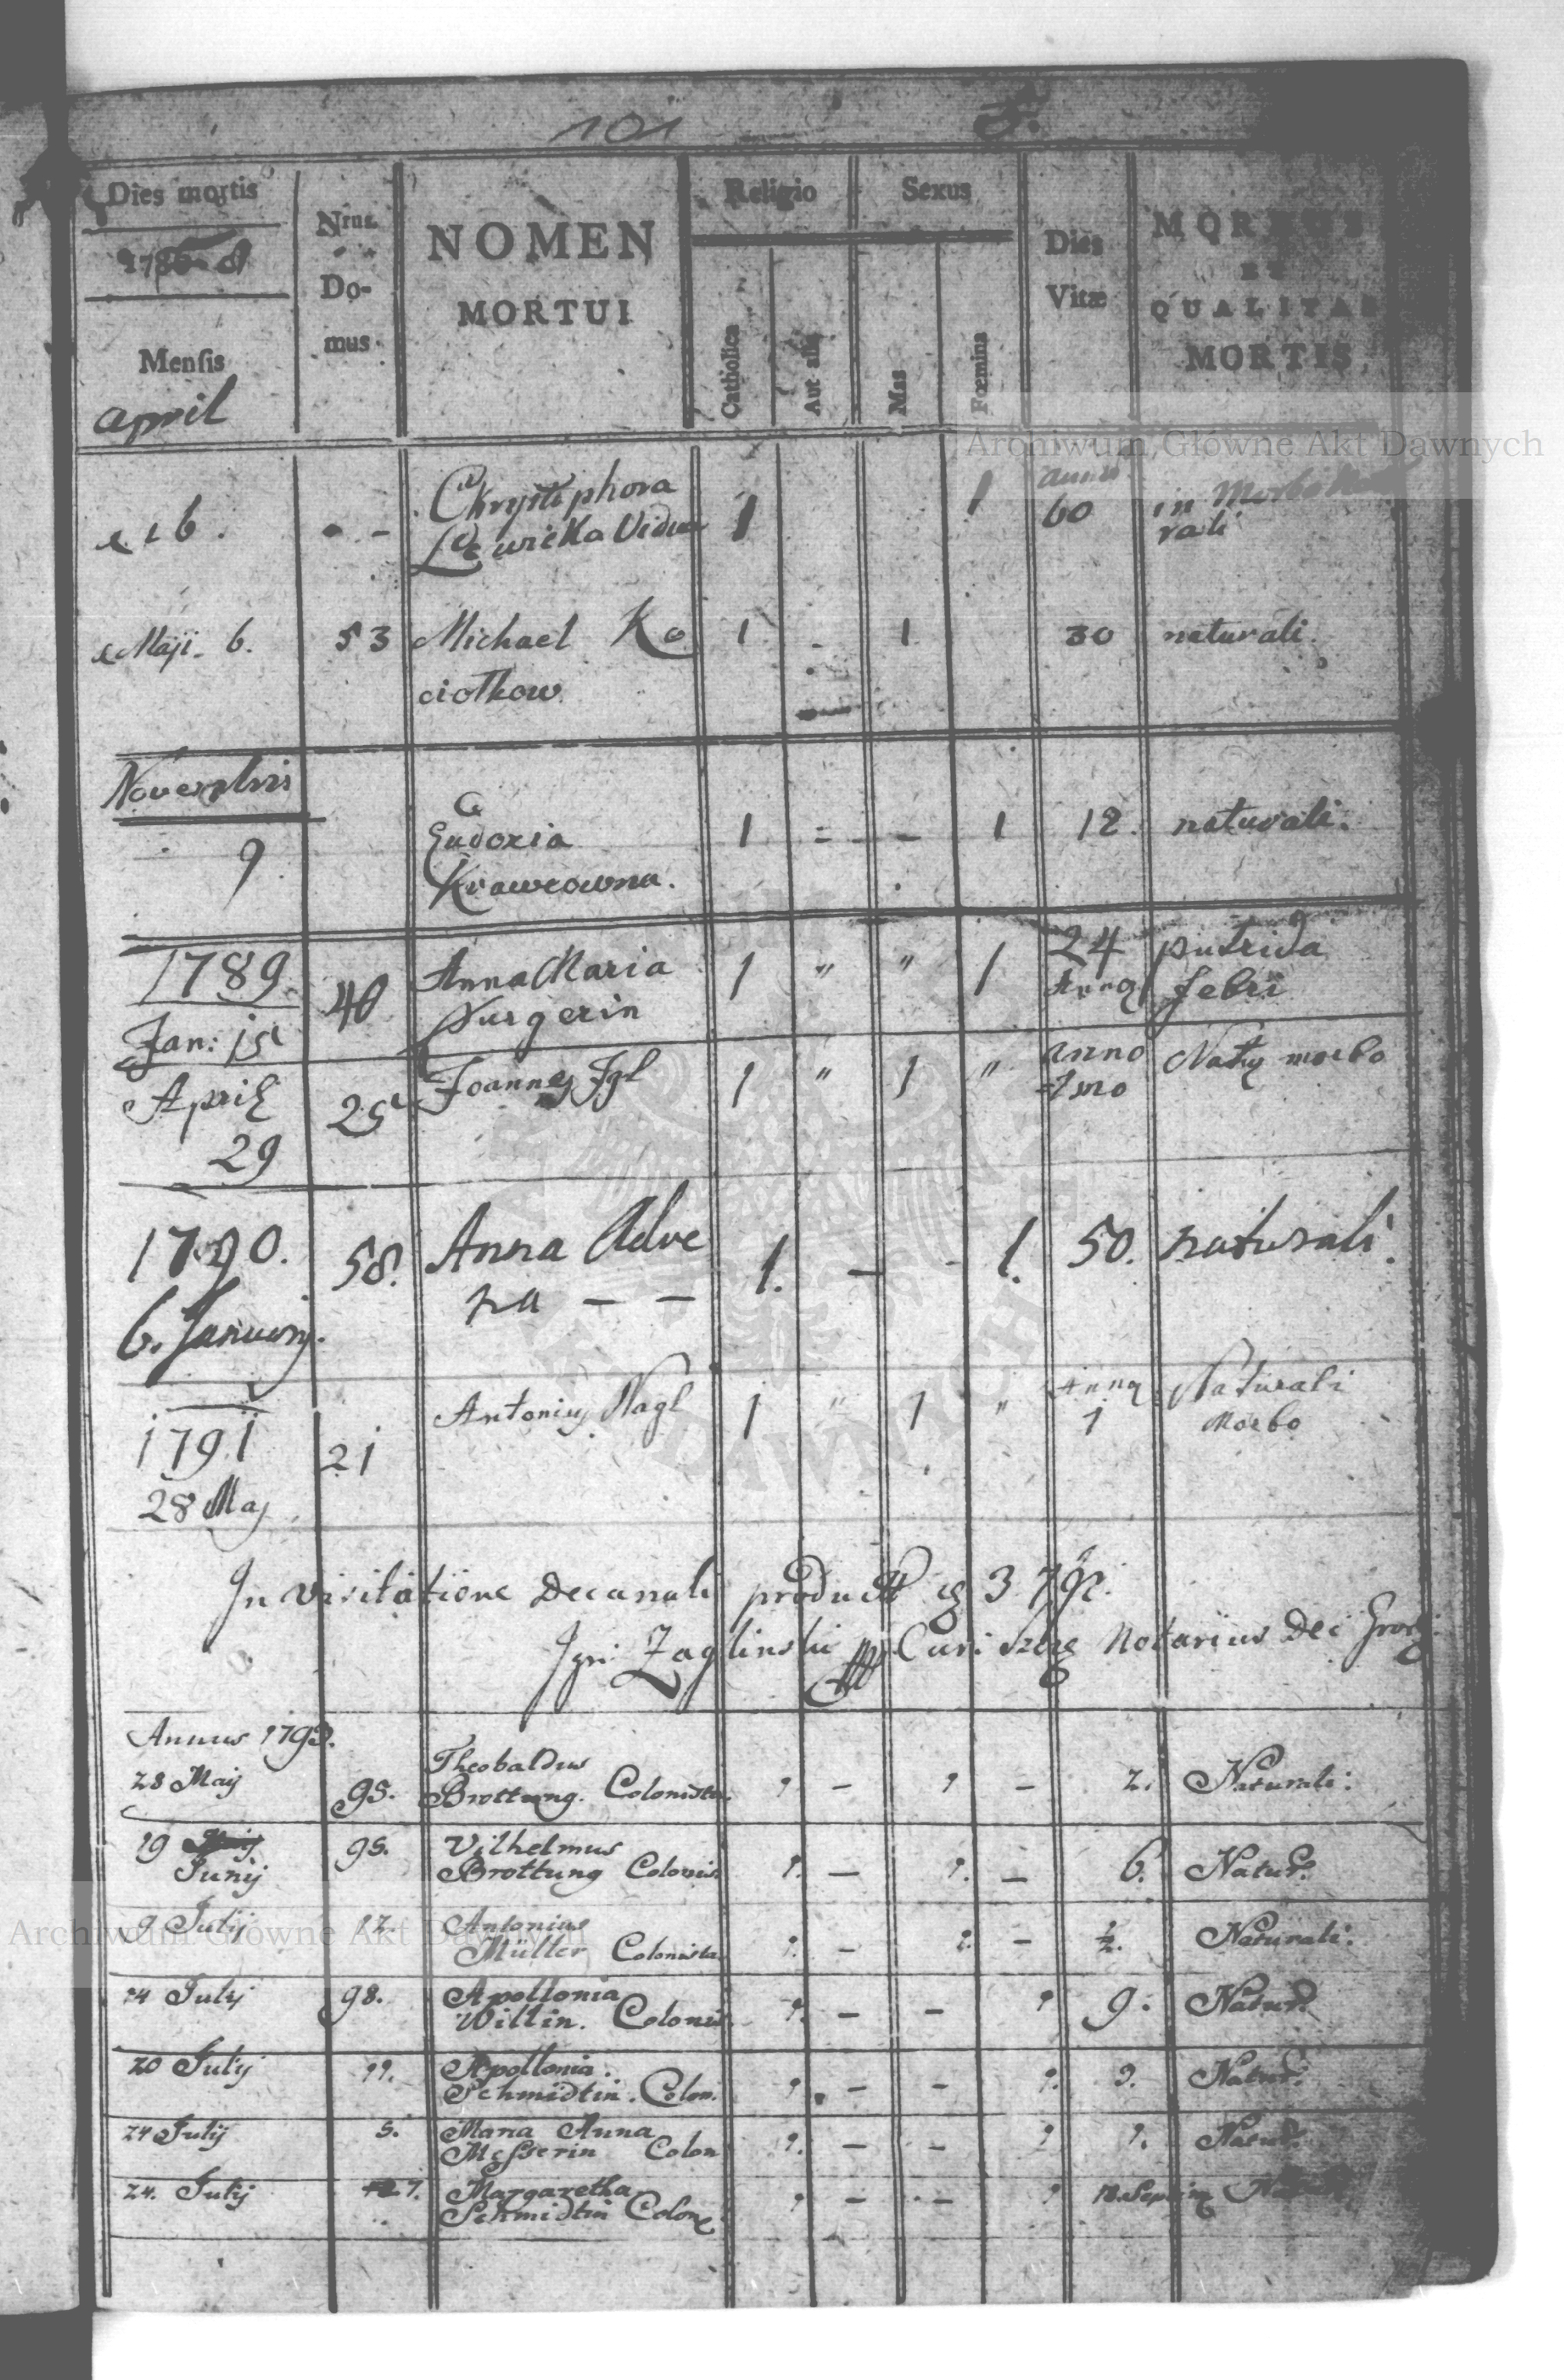 101
Dies mortis
Nrus.
Do-
mus
NOMEN
MORTUI
Religio
Catholica
Aut alia
Sexus
Mas
Fœmina
Dies
Vitæ
MORBUS
ET
QUALITAS
MORTIS
Mensis
april
Archiwum Główne Akt Dawnych
Vidua 1 1 60 in Morbo
rali
Maji 6. 53 Michael Ko 1 - 1 30 naturali.
ciotkow
Novembris
9 Eudoxia 1 = - 1 12. naturali.
Krawcowna.
1789 40 Anna Maria 1 " " 1 24 putrida
Jan: 15 Purgerin febri
April 25 Joannes Igl 1 " 1 " anno morbo
29
1790. 58. Anna Adve 1. - - 1. 50. naturali.
na - -
6. January.
1791 21 Antonius Nagl 1 " 1 " 1 Naturali
28 Maj Morbo
In visitatione Decanali 3
Zaglinski Notarius
Annus 1793.
28 Maij 95. Theobaldus 1 - 1 - 2. Naturali:
Brottung. Colonista.
19 Junij 95. Vilhelmus 1. - 1. - 6. Natur.
Brottung Colonis.
9 Julij 12. Antonius 1. - 1. - ½. Naturali:
Müller Colonista
14 Julij 98. Apollonia 1. - - 1 9. Natur.
Willin. Colonis
20 Julij 11. Apollonia. 1. - - 1. 3. Natur.
Schmidtin. Colon.
24 Julij 5. Maria Anna 1. - - 1 1. Natur.
Messerin Colon
24. Julij 7. Margaretha 1 - - 1 18. Septim
Schmidtin Colon
Archiwum Główne Akt Dawnych